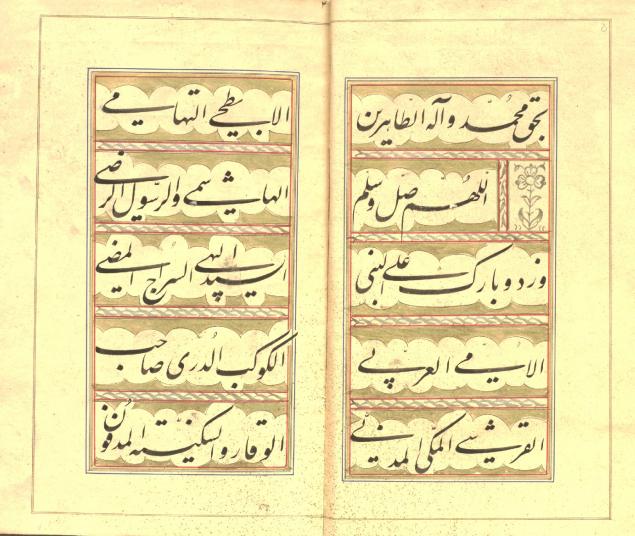 بحق محمد و آله الطاهرین
اللهم صل وسلم
وزد وبارک علی النبی
الامی العربی
القرشی المکی المدنی
الابطحی التهامی
الهاشمی والرسول الرضی
السید البهی السراج المضی
الکوکب الدری صاحب
الوقار والسکینته المدفون